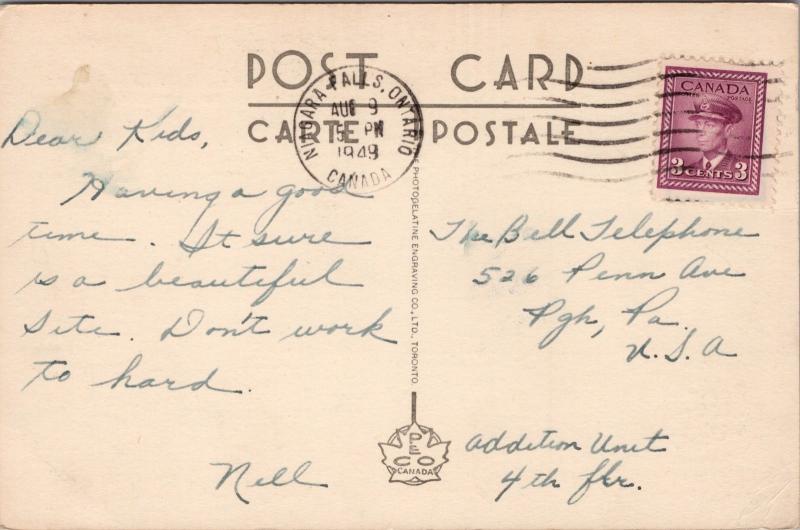 POST CARD
CARTE POSTALE
NIAGARA FALLS, ONTARIO
AUG 9
5 PM
1949
CANADA
CANADA
POSTAGE
3 CENTS 3
Dear Kids,
Having a good
time. It sure
is a beautiful
Site. Don't work
to hard.
Nell
PHOTOGELATINE ENGRAVING CO., LTD., TORONTO.
PECO
CANADA
The Bell Telephone
526 Penn Ave
Pgh, Pa.
U.S.A
Addition Unit
4th flr.